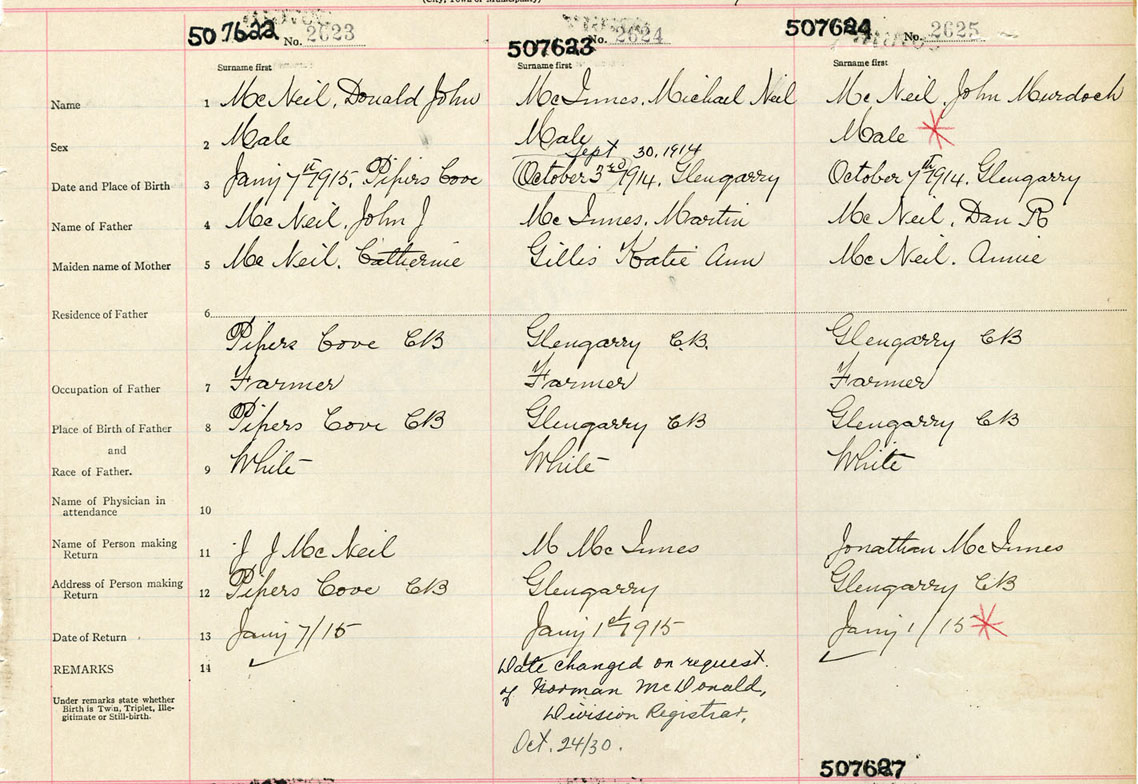 (City, Town or Municipality)
507622 No. 2623
507623 No. 2624
507624 No. 2625
Surname first Surname first Surname first
Name 1 McNeil, Donald John McInnes, Michael Neil McNeil, John Murdoch
Sex 2 Male Male Male
Sept 30, 1914
Date and Place of Birth 3 Jany 7th 1915, Pipers Cove October 3rd 1914. Glengarry October 7th 1914. Glengarry
Name of Father 4 McNeil, John J McInnes, Martin McNeil, Dan R
Maiden name of Mother 5 McNeil, Catherine Gillis Katie Ann McNeil. Annie
Residence of Father 6
Pipers Cove CB Glengarry C.B. Glengarry CB
Occupation of Father 7 Farmer Farmer Farmer
Place of Birth of Father 8 Pipers Cove CB Glengarry CB Glengarry CB
and
Race of Father. 9 White White White
Name of Physician in
attendance 10
Name of Person making
Return 11 J J McNeil M McInnes Jonathan McInnes
Address of Person making
Return 12 Pipers Cove CB Glengarry Glengarry CB
Date of Return 13 Jany 7/15 Jany 1st 1915 Jany 1/15
REMARKS 14 Date changed on request
Under remarks state whether
Birth is Twin, Triplet, Ille-
gitimate or Still-birth.
of Norman McDonald,
Division Registrar,
Oct. 24/30.
507627